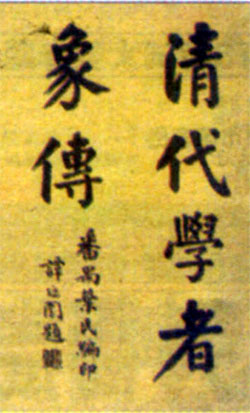 清代學者
象傳
番禺葉氏編印
譚闓題